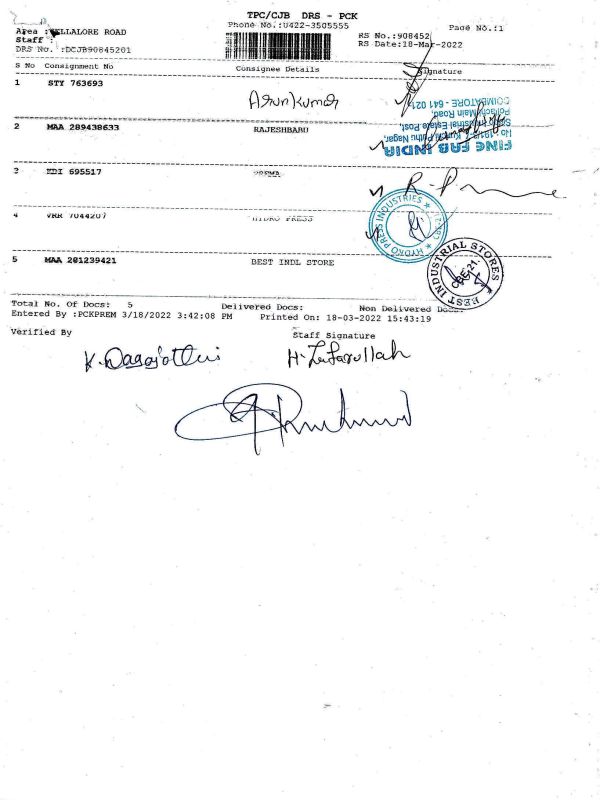 TPC/CJB DRS - PCK
Phone No.:0422-3505555
Page No.:1
Area :VELLALORE ROAD
Staff :
DRS No. :DCJB90845201
RS No.:908452
RS Date:18-Mar-2022
S No Consignment No Consignee Details Signature
1 STY 763693
Arunkumar
2 MAA 289438633 RAJESHBABU
FINE FAB INDIA
COIMBATORE - 641 021
3 EDI 695517 PREMA
4 VRR 7044207 HYDRO PRESS
HYDRO PRESS INDUSTRIES
5 MAA 281239421 BEST INDL STORE
BEST INDUSTRIAL STORES
CBE-21.
Total No. Of Docs: 5 Delivered Docs: Non Delivered Docs:
Entered By :PCKPREM 3/18/2022 3:42:08 PM Printed On: 18-03-2022 15:43:19
Verified By Staff Signature